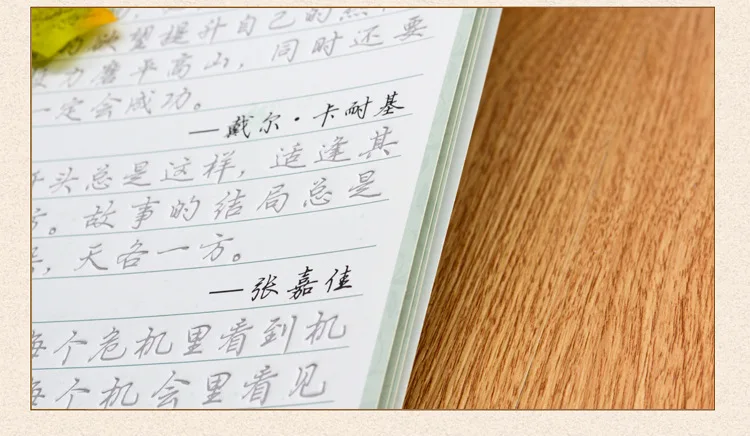 欲望提升自己的
力磨平高山，同时还要
一定会成功。
—戴尔·卡耐基
开头总是这样，适逢其
方。故事的结局总是
，天各一方。
—张嘉佳
每个危机里看到机
每个机会里看见